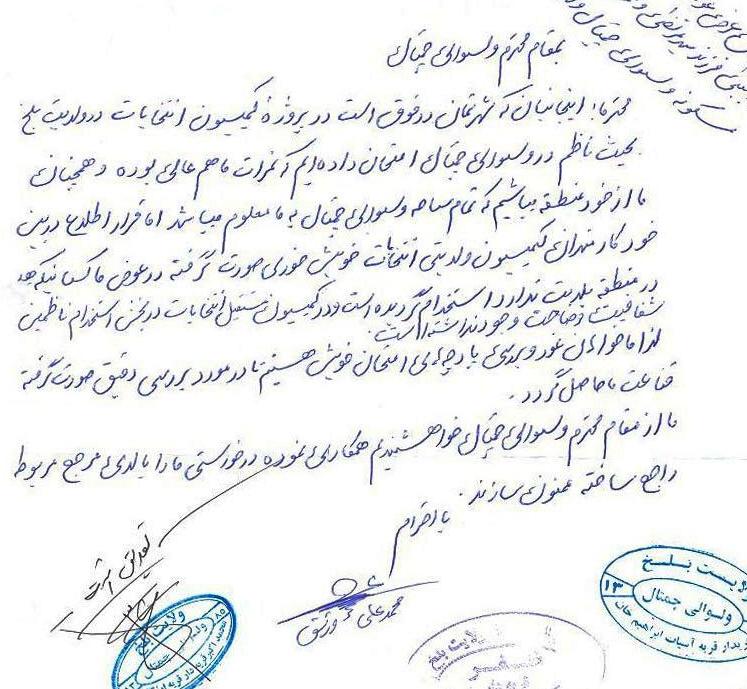 بمقام محترم ولسوالی چمتال
محترما: اینجانبان که شهرتمان در فوق است در پروژهٔ کمیسیون انتخابات در ولایت بلخ
بحیث ناظم در ولسوالی چمتال امتحان داده ایم که نمرات ما هم عالی بوده و همچنان
ما از خود منطقه میباشیم که تمام ساحه ولسوالی چمتال به ما معلوم میباشد اما قرار اطلاع در بین
خود کارمندان کمیسیون ولایتی انتخابات خویش خوری صورت گرفته در عوض ما کسانیکه
در منطقه بلدیت ندارد استخدام گردیده است و در کمیسیون مستقل انتخابات در بخش استخدام ناظمین
شفافیت وضاحت وجود نداشته است.
لذا ما خواهان غور و بررسی پارچه های امتحان خویش هستیم تا در مورد بررسی دقیق صورت گرفته
قناعت ما حاصل گردد.
ما از مقام محترم ولسوالی چمتال خواهشمندیم همکاری نموده درخواستی ما را بالای مرجع مربوط
راجع ساخته ممنون سازند.
با احترام
تصدیق است
محمد علی
ولایت بلخ
ولسوالی چمتال
ولایت بلخ
۱۳
ولسوالی چمتال
قریه آسیات ابراهیم خان
ولایت بلخ